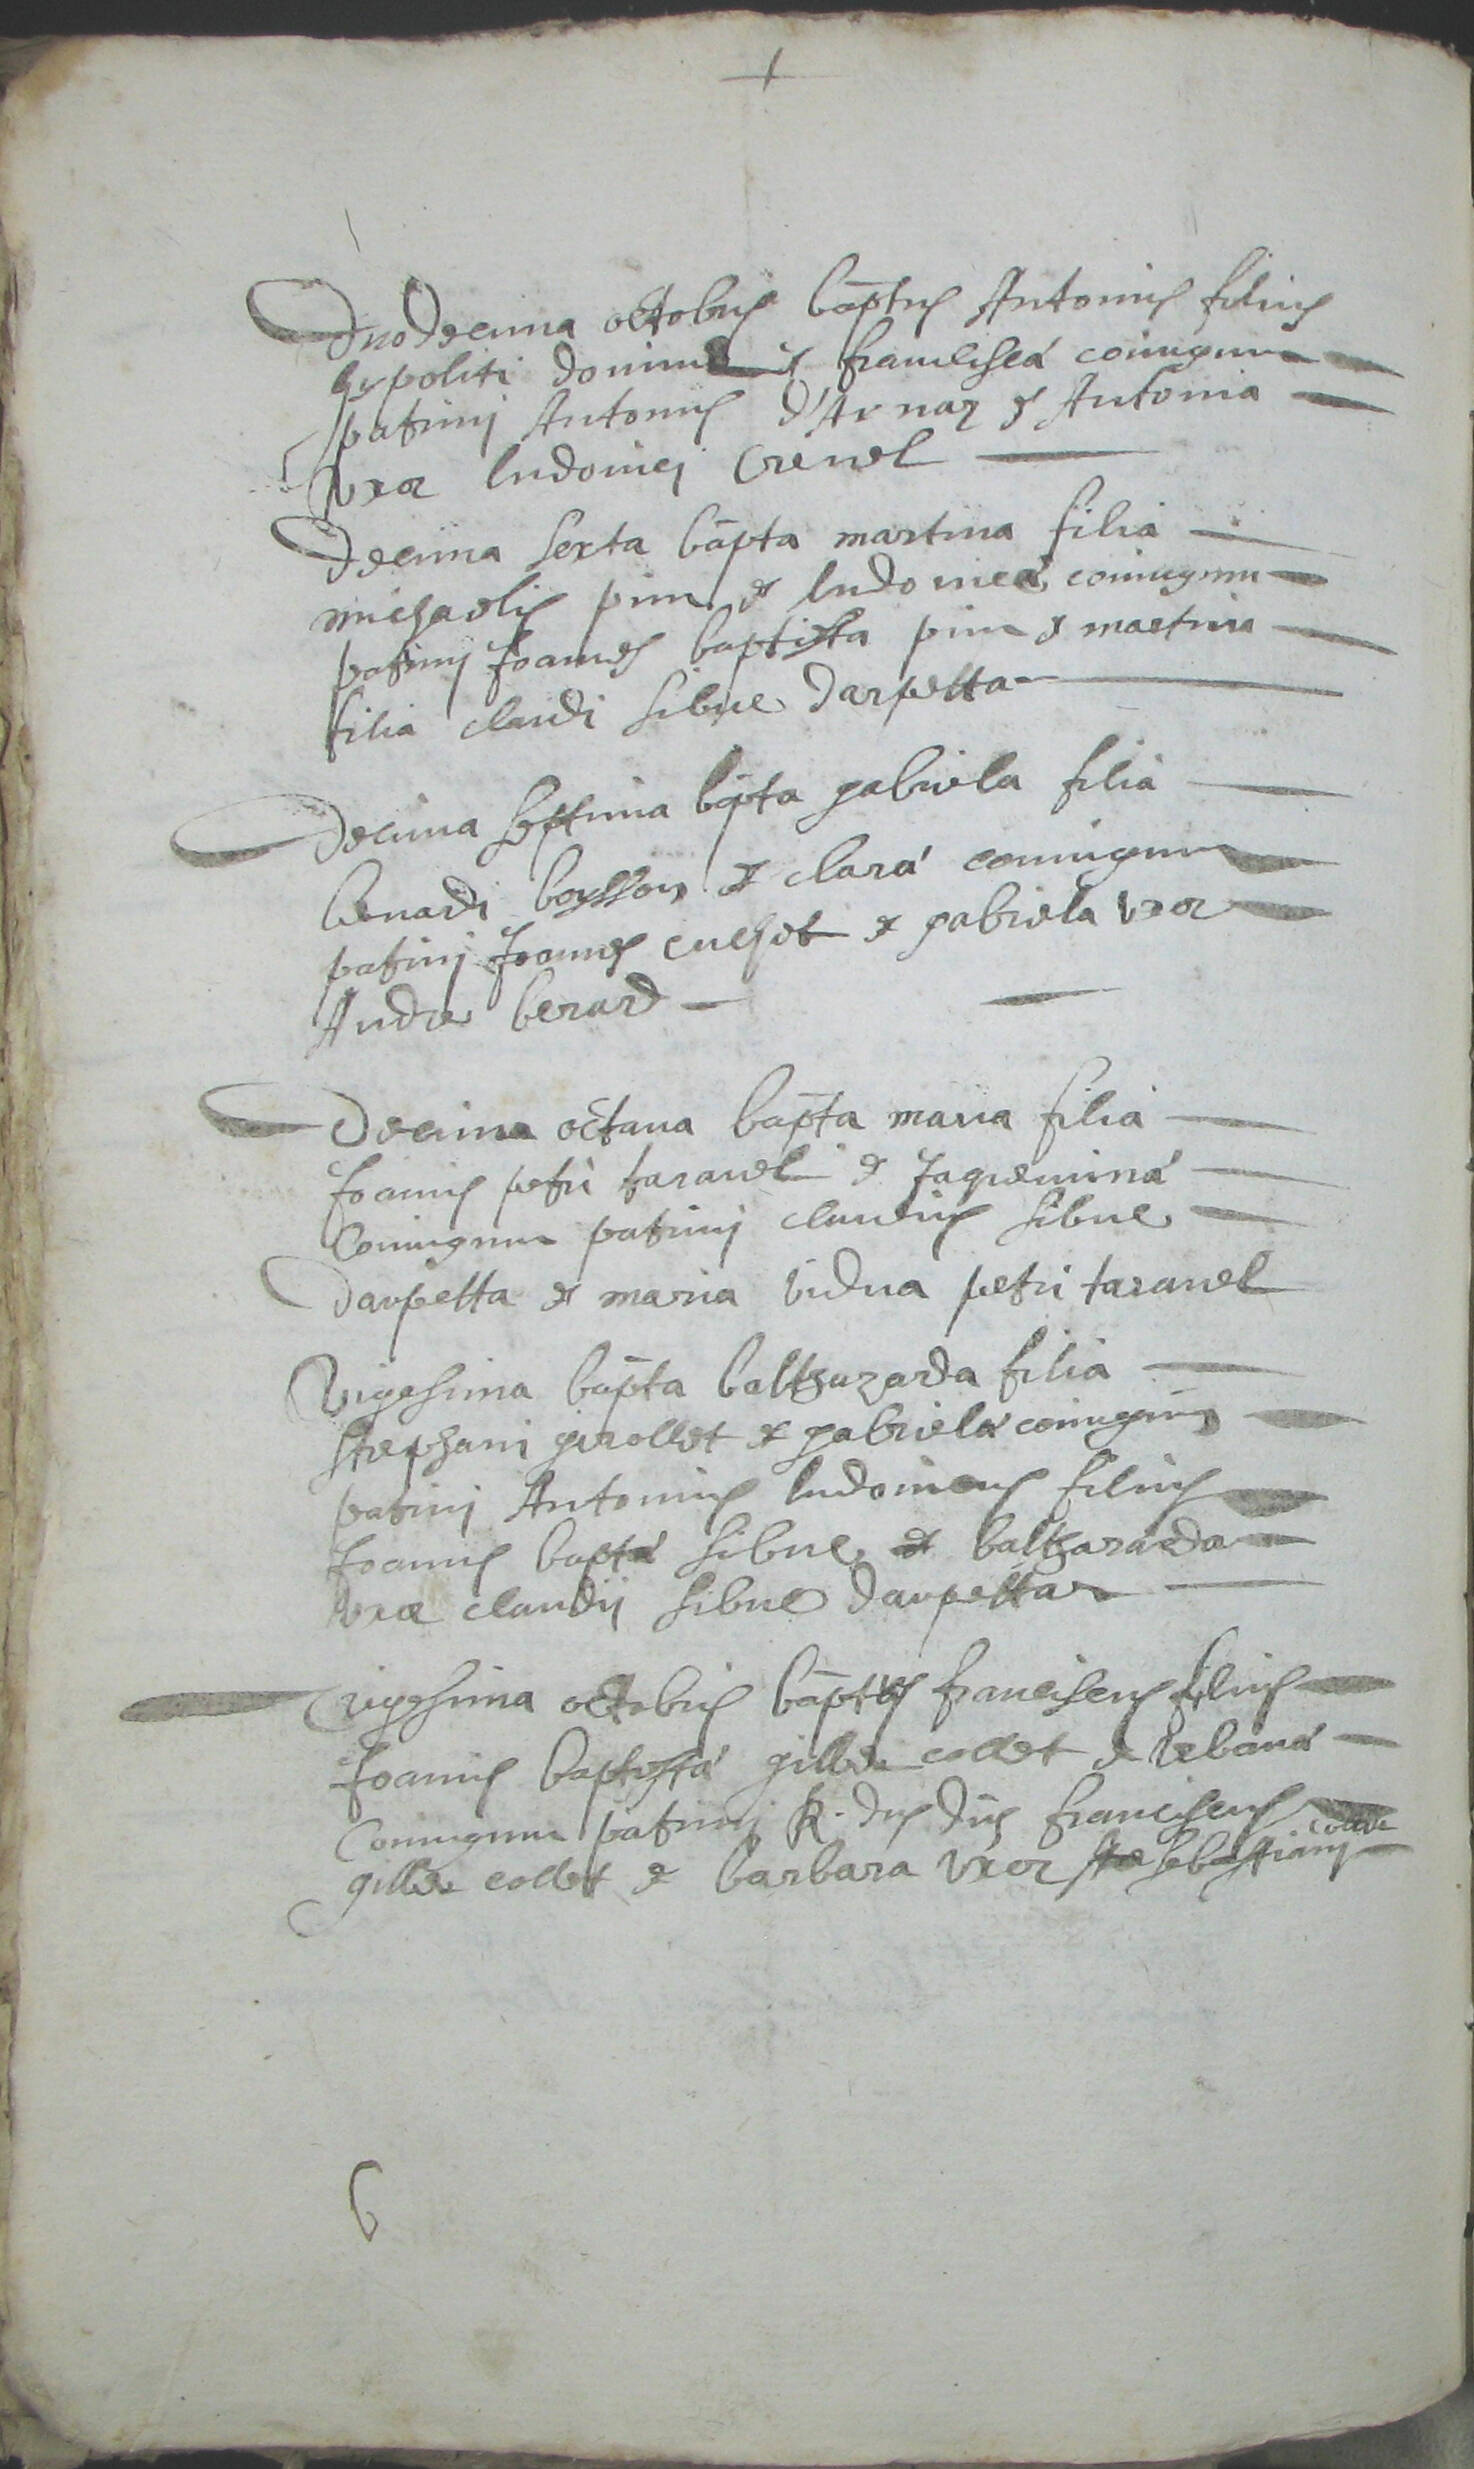 Duodecima octobris bāptus Antonius filius
hypoliti et franciscá coniugum
patrini Antonius d'Arnaz et Antonia
uxor ludovici
Decima sexta bāpta martina filia
michaelis pin et ludovicá coniugum
patrini Joannes baptista pin et martina
filia claudi sibue darpetta
Decima septima bāpta gabriela filia
benardi boysson et clará coniugum
patrini Joannes cuchet et gabriela uxor
Andre berard
Decima octava bāpta maria filia
Joannis petri taravel et Jaqueminá
Coniugum patrini claudius sibue
darpetta et maria vidua petri taravel
Vigesima bāpta balthazarda filia
stephani girollet et gabrielá coniugum
patrini Antonius ludovicus filius
Joannis baptá sibue et baltharda
uxor claudii sibue darpetta
vigesima octobris bāptus franciscus filius
Joannis baptistá gille collet et Urbaná
Coniugum patrini R. dus dūs franciscus
gille collet et barbara uxor sebastiani